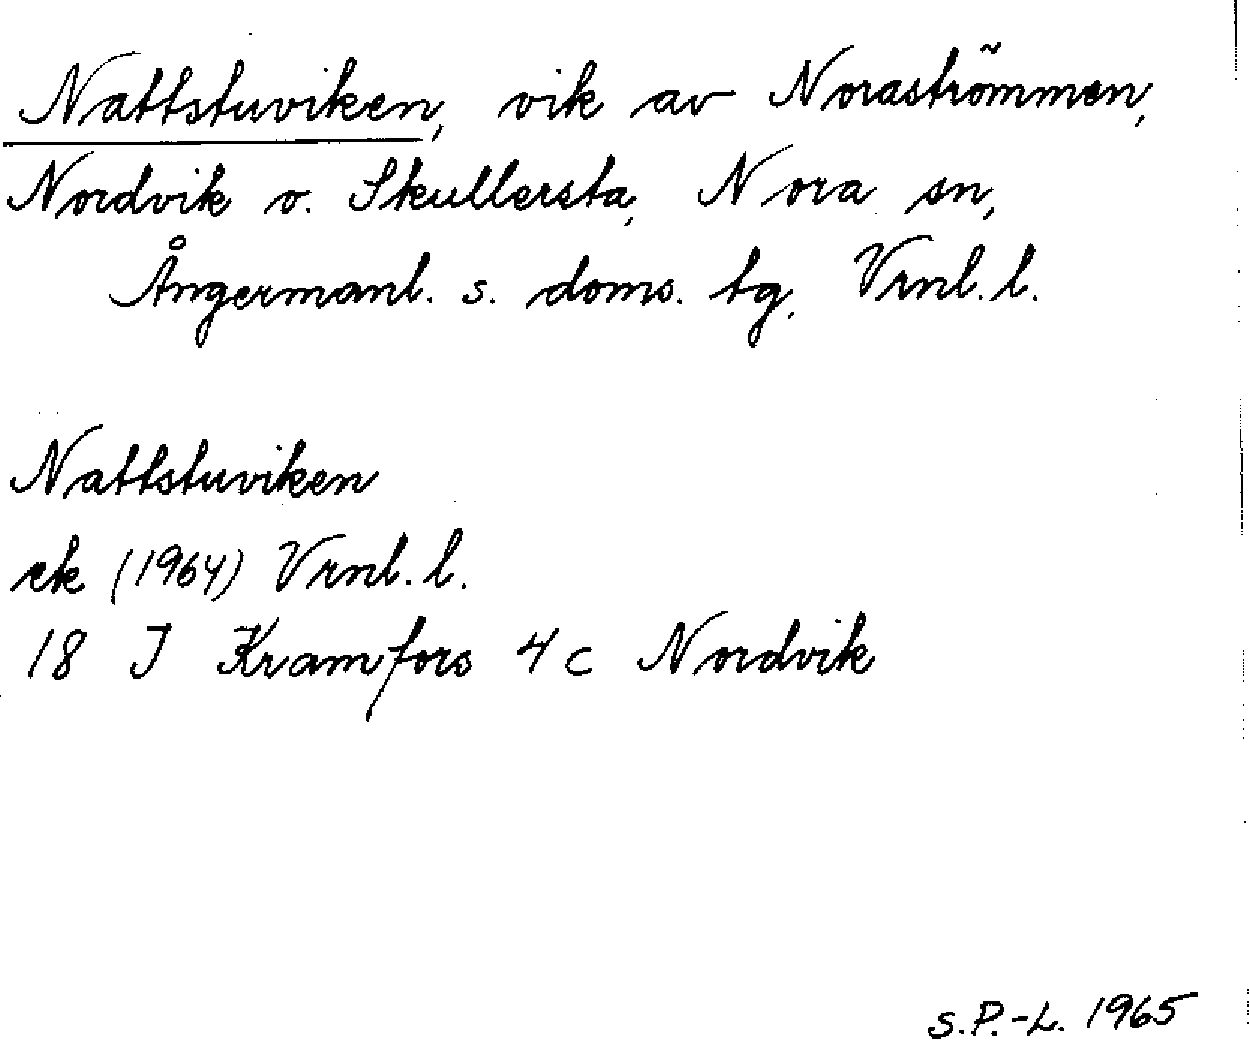 Nattstuviken, vik av Noraströmmen,
Nordvik o. Skullersta, Nora sn,
Ångermanl. s. doms. tg, Vrnl. l.
Nattstuviken
ek (1964) Vrnl. l.
18 J Kramfors 4 c Nordvik
S.P.-L. 1965